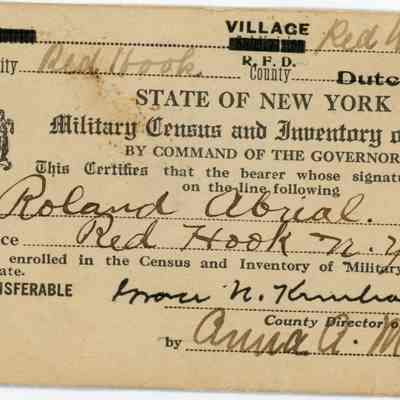 VILLAGE Red
ity Red Hook. R. F. D. County Dutc
STATE OF NEW YORK
Military Census and Inventory o
BY COMMAND OF THE GOVERNOR
This Certifies that the bearer whose signatu
on the line following
Roland Abrial.
ce Red Hook N. Y
enrolled in the Census and Inventory of Military
ate.
NSFERABLE Grace N. Kimba
County Director o
by Anna A. M